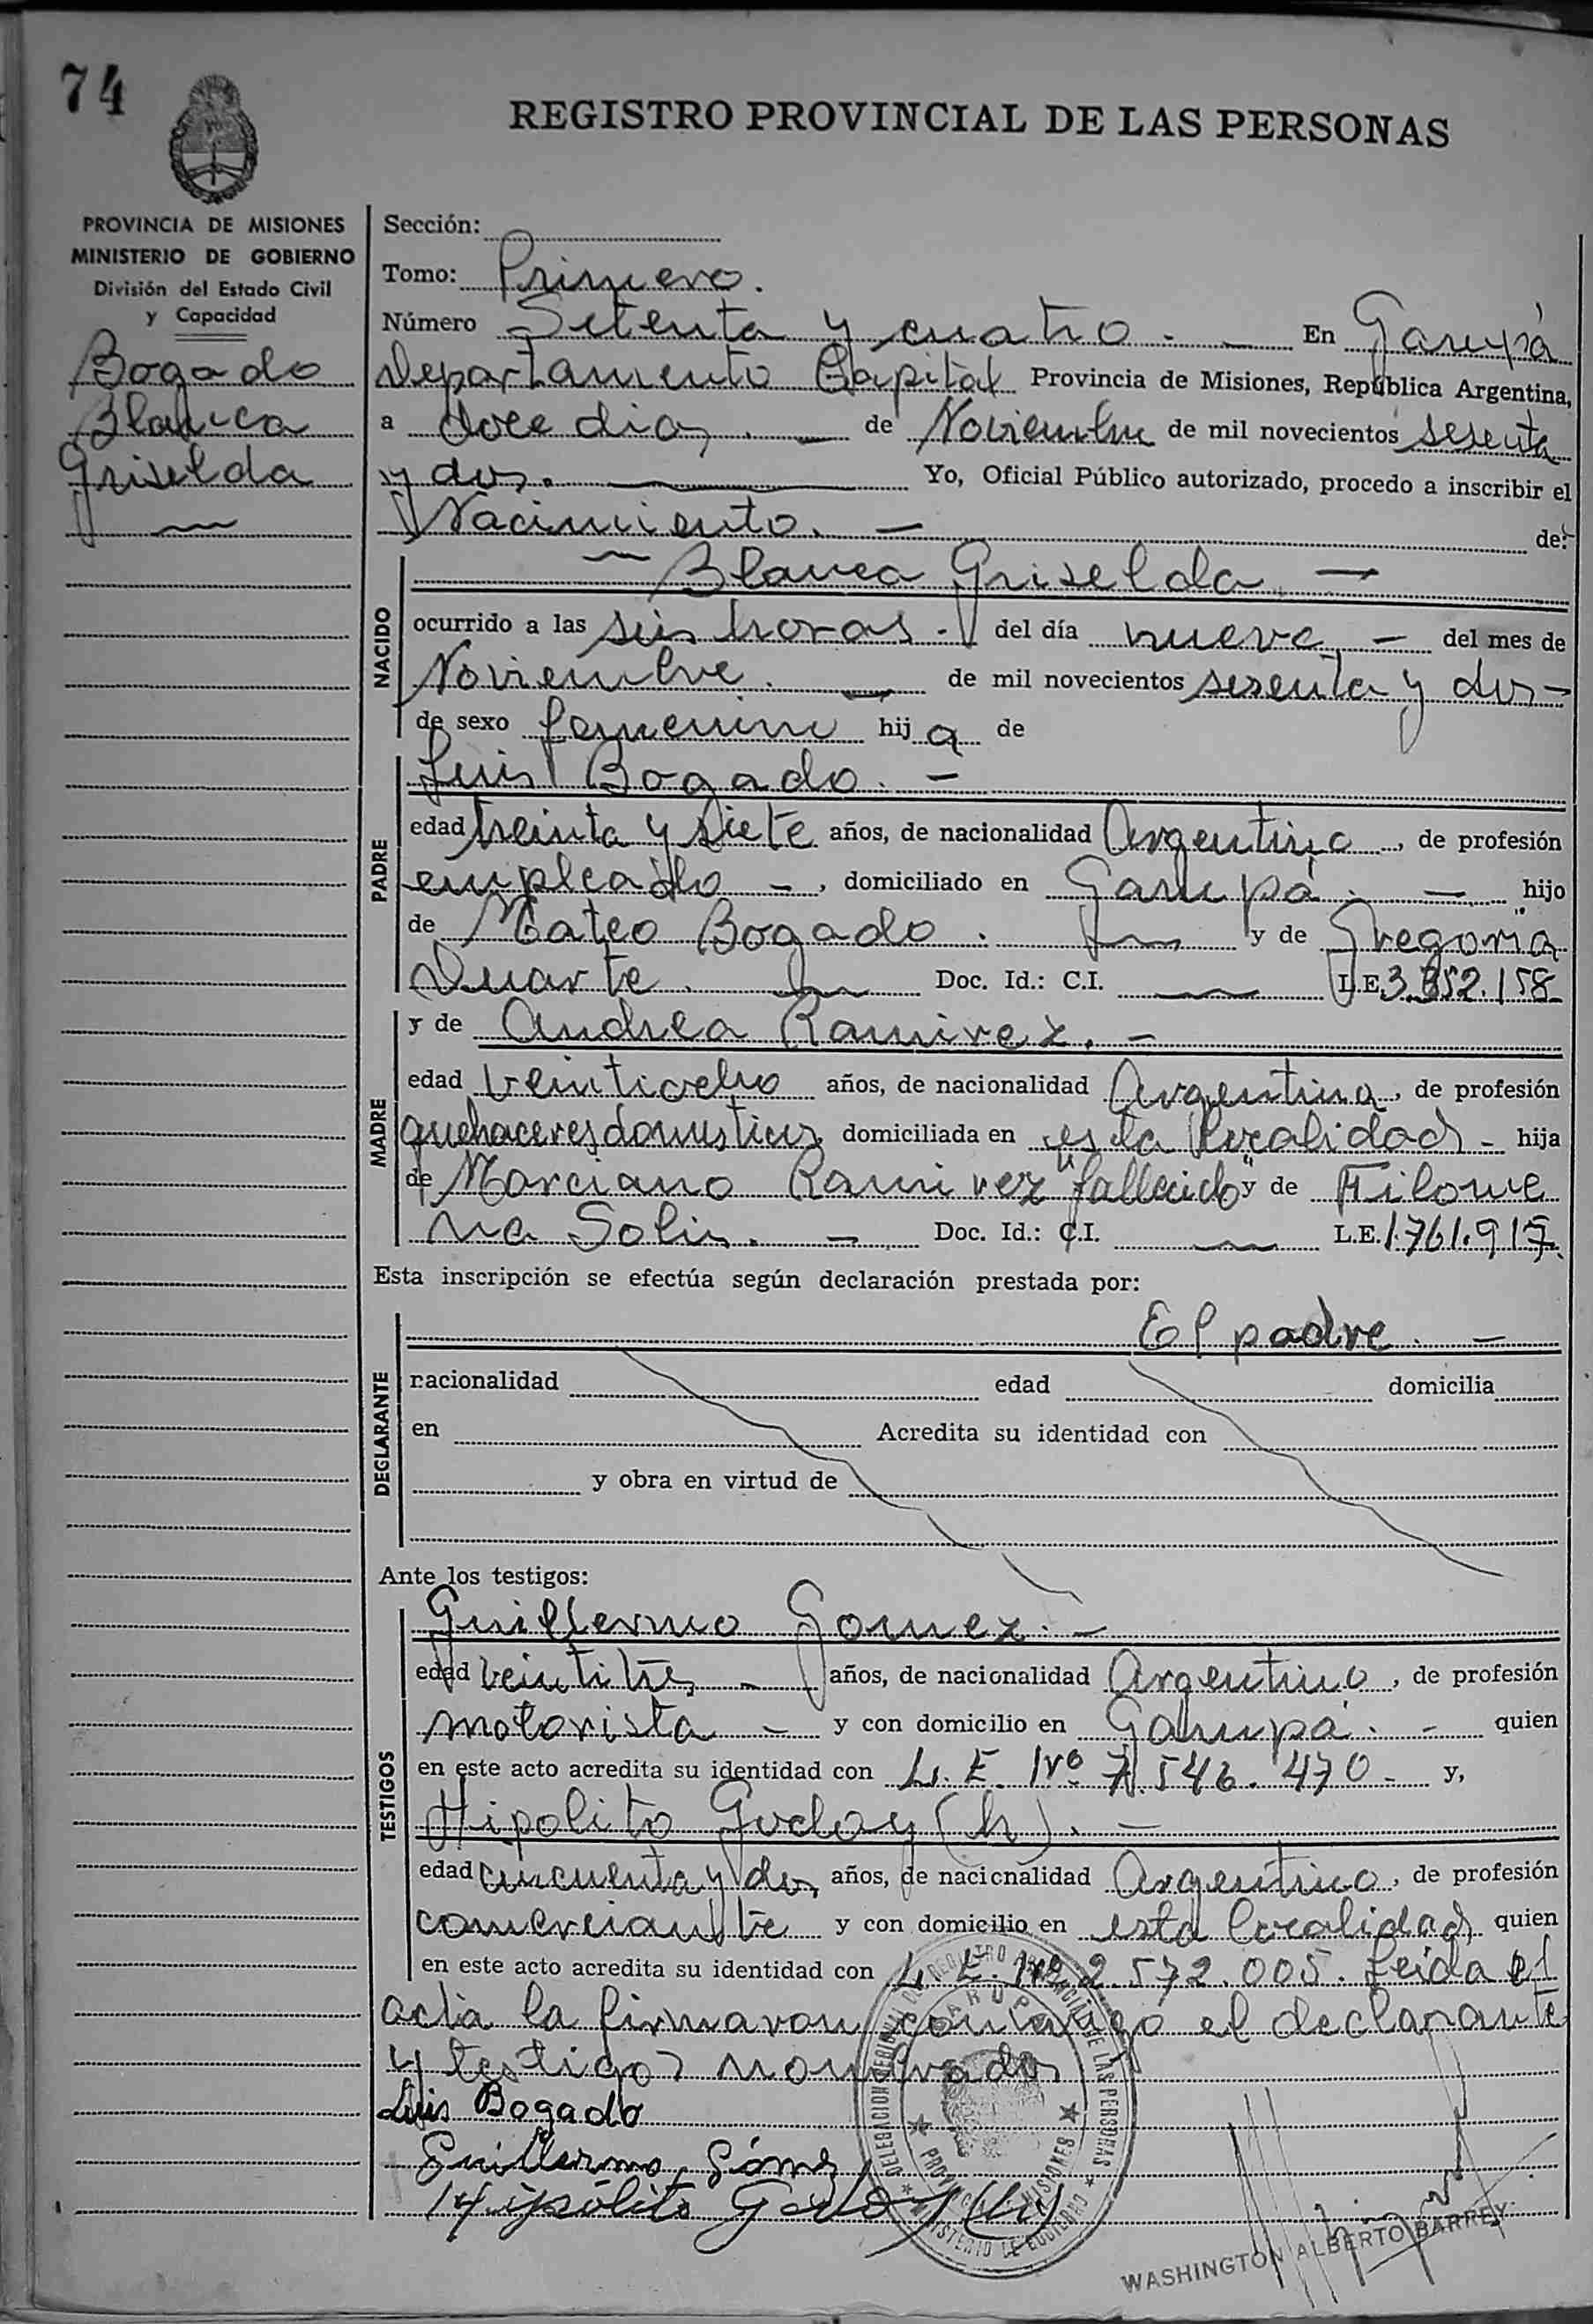 74
REGISTRO PROVINCIAL DE LAS PERSONAS
PROVINCIA DE MISIONES
MINISTERIO DE GOBIERNO
División del Estado Civil
y Capacidad
Bogado
Blanca
Griselda
Sección:
Tomo: Primero.
Número Setenta y cuatro. En Garupá
Departamento Capital Provincia de Misiones, República Argentina,
a doce dias. de Noviembre de mil novecientos sesenta
y dos. Yo, Oficial Público autorizado, procedo a inscribir el
Nacimiento. de:
NACIDO
Blanca Griselda
ocurrido a las seis horas. del día nueve del mes de
Noviembre. de mil novecientos sesenta y dos
de sexo femenino hij a de
PADRE
Luis Bogado.
edad treinta y siete años, de nacionalidad Argentino, de profesión
empleado, domiciliado en Garupá. hijo
de Mateo Bogado. y de Gregoria
Duarte. Doc. Id.: C.I. L.E. 3.352.158
MADRE
y de Andrea Ramirez.
edad veintiocho años, de nacionalidad Argentina, de profesión
quehaceres domesticos domiciliada en esta localidad hija
de Marciano Ramirez "fallecido" y de Filome
na Solis. Doc. Id.: C.I. L.E. 1.761.917
Esta inscripción se efectúa según declaración prestada por:
DECLARANTE
El padre.
nacionalidad edad domicilia
en Acredita su identidad con
y obra en virtud de
Ante los testigos:
TESTIGOS
Guillermo Gomez.
edad veintitres años, de nacionalidad Argentino, de profesión
motorista y con domicilio en Garupá. quien
en este acto acredita su identidad con L. E. Nº 7.546.470 y,
Hipolito Godoy (h).
edad cincuenta y dos años, de nacionalidad Argentino, de profesión
comerciante y con domicilio en esta localidad quien
en este acto acredita su identidad con L. E. Nº 2.572.005. Leida el
acta la firmaron conmigo el declarante
y testigos nombrados
Luis Bogado
Guillermo Gómez
Hipólito Godoy (h)
GARUPA
PROVINCIA DE MISIONES
MINISTERIO DE GOBIERNO
WASHINGTON ALBERTO BARREY